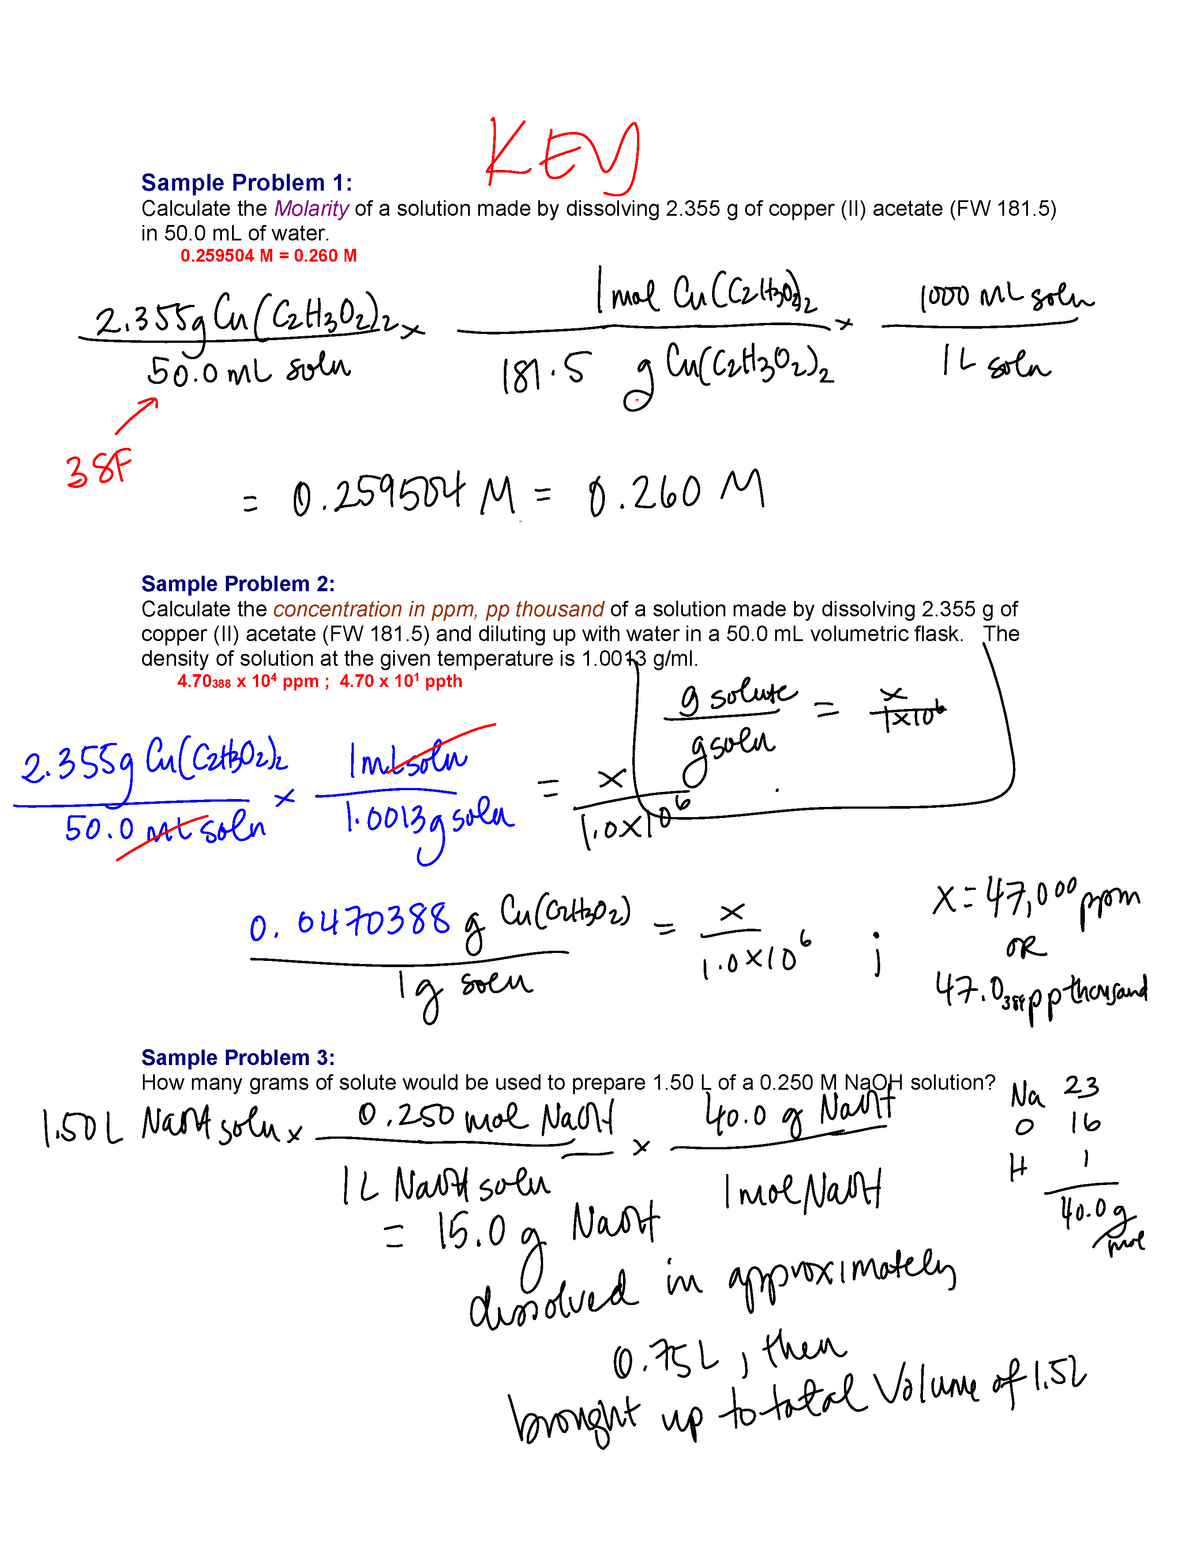 KEY
Sample Problem 1:
Calculate the Molarity of a solution made by dissolving 2.355 g of copper (II) acetate (FW 181.5)
in 50.0 mL of water.
0.259504 M = 0.260 M
2.355g Cu(C2H3O2)2 x 1 mol Cu(C2H3O2)2 x 1000 mL soln
50.0 mL soln 181.5 g Cu(C2H3O2)2 1 L soln
3 SF
= 0.259504 M = 0.260 M
Sample Problem 2:
Calculate the concentration in ppm, pp thousand of a solution made by dissolving 2.355 g of
copper (II) acetate (FW 181.5) and diluting up with water in a 50.0 mL volumetric flask. The
density of solution at the given temperature is 1.0013 g/ml.
4.70388 x 10⁴ ppm ; 4.70 x 10¹ ppth
g solute = x
g soln 1x10⁶
2.355g Cu(C2H3O2)2 x 1 mL soln = x
50.0 mL soln 1.0013g soln 1.0x10⁶
0.0470388 g Cu(C2H3O2) = x ; x = 47,000 ppm
1g soln 1.0x10⁶ OR
47.0388 pp thousand
Sample Problem 3:
How many grams of solute would be used to prepare 1.50 L of a 0.250 M NaOH solution?
1.50 L NaOH soln x 0.250 mol NaOH x 40.0 g NaOH
1 L NaOH soln 1 mol NaOH
Na 23
O 16
H 1
40.0 g
mol
= 15.0 g NaOH
dissolved in approximately
0.75 L, then
brought up to total volume of 1.5L